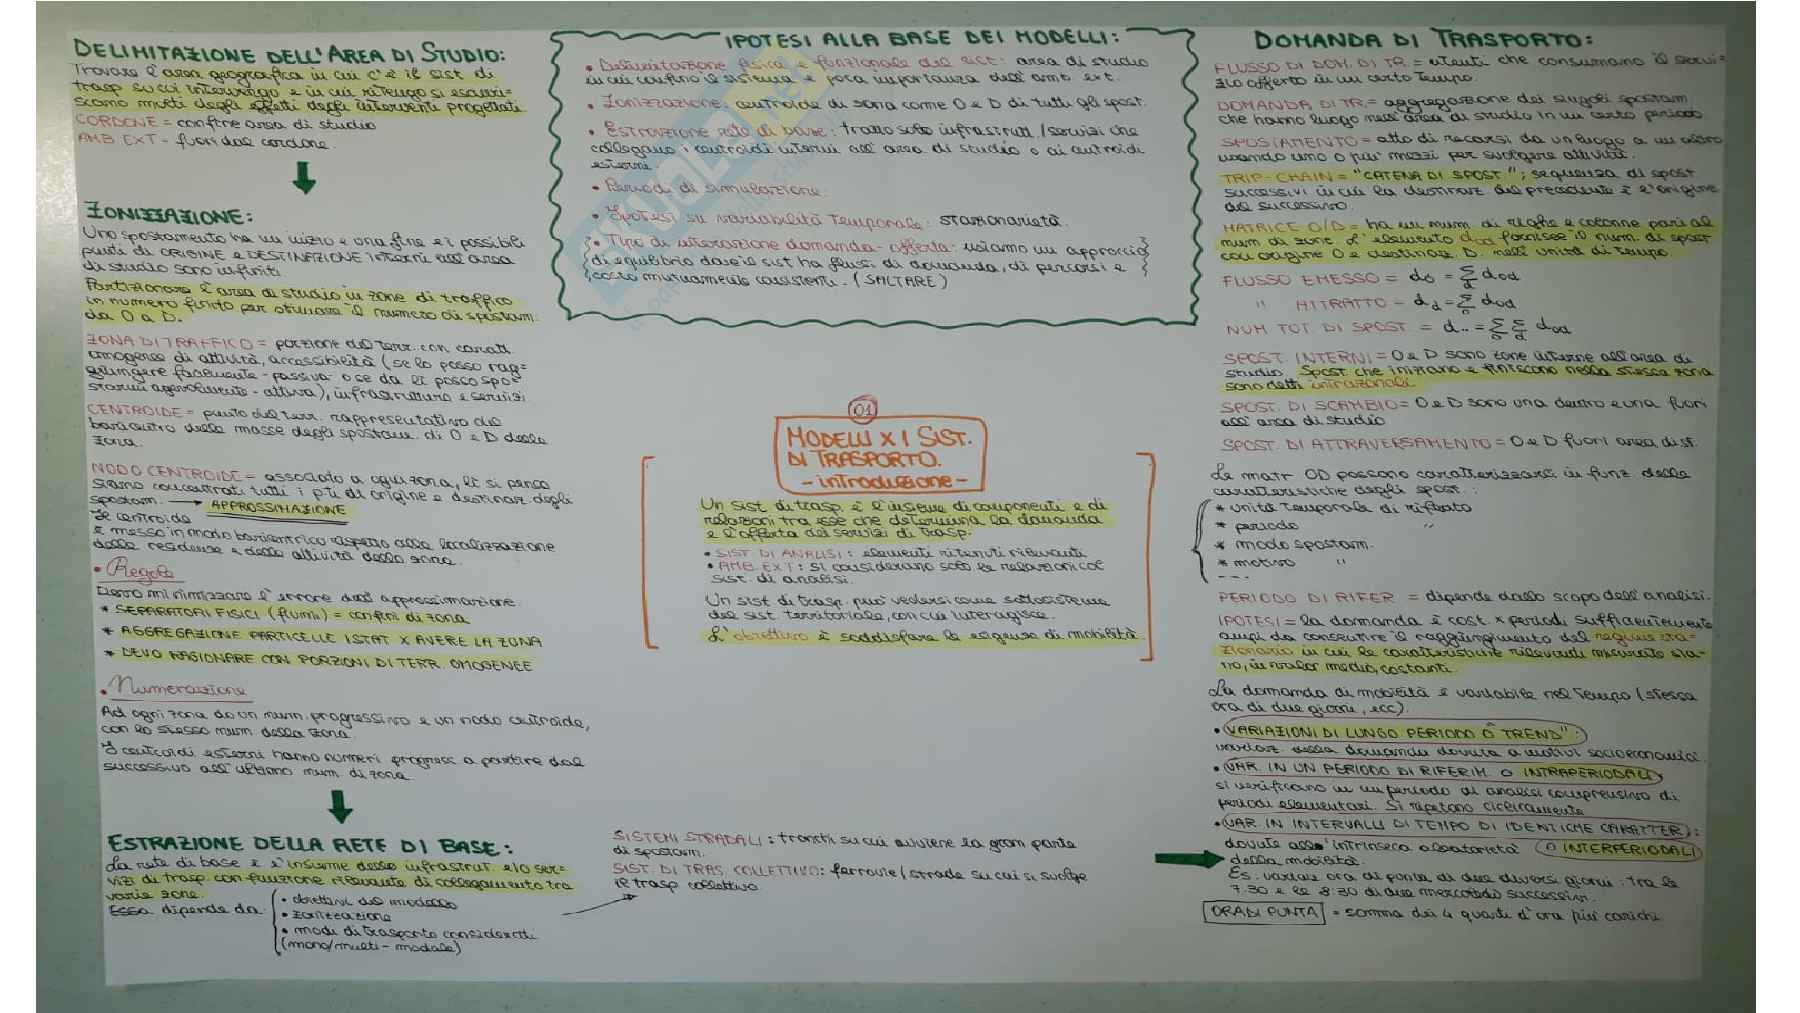 DELIMITAZIONE DELL'AREA DI STUDIO:
Trovare l'area geografica in cui c'è il sist di
trasp su cui intervengo e in cui ritengo si esauri=
scano molti degli effetti degli interventi progettati
CORDONE = confine area di studio
AMB EXT - fuori dal cordone.
ZONIZZAZIONE:
Uno spostamento ha un inizio e una fine e i possibili
punti di ORIGINE e DESTINAZIONE interni all'area
di studio sono infiniti.
Partizionare l'area di studio in zone di traffico
in numero finito per stimare il numero di spostam.
da O a D.
ZONA DI TRAFFICO = porzione del terr. con caratt.
omogenee di attività, accessibilità (se lo posso rag=
giungere facilmente - passiva o se da lì posso spo=
starmi agevolmente - attiva), infrastrutture e servizi
CENTROIDE = punto del terr. rappresentativo del
baricentro delle masse degli spostam. di O e D della
zona.
NODO CENTROIDE = associato a ogni zona, lì si pensa
siano concentrati tutti i p.ti di origine e destinaz degli
spostam. → APPROSSIMAZIONE
Il centroide
è messo in modo baricentrico rispetto alla localizzazione
delle residenze e delle attività della zona.
• Regole
Devo minimizzare l'errore dell'approssimazione.
* SEPARATORI FISICI (fiumi) = confini di zona
* AGGREGAZIONE PARTICELLE ISTAT X AVERE LA ZONA
* DEVO RAGIONARE CON PORZIONI DI TERR. OMOGENEE
• Numerazione
Ad ogni zona do un num. progressivo e un nodo centroide,
con lo stesso num della zona.
I centroidi esterni hanno numeri progress a partire dal
successivo all'ultimo num. di zona
ESTRAZIONE DELLA RETE DI BASE:
La rete di base è l'insieme delle infrastrut. e/o ser=
vizi di trasp. con funzione rilevante di collegamento tra
varie zone.
Essa dipende da:
• obiettivi del modello
• zonizzazione
• modi di trasporto considerati
(mono/multi-modale)
SISTEMI STRADALI: tronchi su cui avviene la gran parte
di spostam.
SIST. DI TRAS. COLLETTIVO: ferrovie/strade su cui si svolge
il trasp collettivo.
IPOTESI ALLA BASE DEI MODELLI:
• Delimitazione fisica e funzionale del sist: area di studio
in cui confino il sistema e poca importanza dell'amb. ext.
• Zonizzazione: centroide di zona come O e D di tutti gli spost.
• Estrazione rete di base: tratto solo infrastrutt./servizi che
collegano i centroidi interni all'area di studio o ai centroidi
esterni.
• Periodi di simulazione.
• Ipotesi su variabilità temporale: stazionarietà.
• Tipo di interazione domanda-offerta: usiamo un approccio
di equilibrio dove il sist ha flussi di domanda, di percorsi e
costo mutuamente consistenti. (SALTARE)
01
MODELLI X I SIST.
DI TRASPORTO.
- introduzione -
Un sist di trasp. è l'insieme di componenti e di
relazioni tra esse che determina la domanda
e l'offerta dei servizi di trasp.
• SIST. DI ANALISI: elementi ritenuti rilevanti
• AMB. EXT: si considerano solo le relazioni col
sist. di analisi.
Un sist di trasp. può vedersi come sottosistema
del sist. territoriale, con cui interagisce.
L'obiettivo è soddisfare le esigenze di mobilità.
DOMANDA DI TRASPORTO:
FLUSSO DI DOM. DI TR. = utenti che consumano il servi=
zio offerto in un certo tempo.
DOMANDA DI TR. = aggregazione dei singoli spostam
che hanno luogo nell'area di studio in un certo periodo.
SPOSTAMENTO = atto di recarsi da un luogo a un altro
usando uno o più mezzi per svolgere attività.
TRIP-CHAIN = "CATENA DI SPOST"; sequenza di spost
successivi in cui la destinaz del precedente è l'origine
del successivo.
MATRICE O/D = ha un num. di righe e colonne pari al
num di zone. L'elemento dod fornisce il num. di spost
con origine O e destinaz. D. nell'unità di tempo.
FLUSSO EMESSO = do = Σd dod
" ATTRATTO = dd = Σo dod
NUM TOT DI SPOST = d.. = Σo Σd dod
SPOST. INTERNI = O e D sono zone interne all'area di
studio. Spost che iniziano e finiscono nella stessa zona
sono detti intrazonali.
SPOST. DI SCAMBIO = O e D sono una dentro e una fuori
all'area di studio
SPOST. DI ATTRAVERSAMENTO = O e D fuori area di st.
Le matr OD possono caratterizzarsi in funz della
caratteristiche degli spost.:
* unità temporale di rifento
* periodo "
* modo spostam.
* motivo "
- - -
PERIODO DI RIFER = dipende dallo scopo dell'analisi.
IPOTESI = la domanda è cost. x periodi sufficientemente
ampi da consentire il raggiungimento del regime sta=
zionario in cui le caratteristiche rilevanti sia=
no, in valor medio, costanti.
La domanda di mobilità è variabile nel tempo (stessa
ora di due giorni, ecc).
• VARIAZIONI DI LUNGO PERIODO O "TREND":
variaz. della domanda dovuta a motivi socioeconomici.
• VAR. IN UN PERIODO DI RIFERIM. O INTRAPERIODALI
si verificano in un periodo di analisi comprensivo di
periodi elementari. Si ripetono ciclicamente
• VAR. IN INTERVALLI DI TEMPO DI IDENTICHE CARATTER):
dovute all'intrinseca aleatorietà O INTERPERIODALI
della mobilità.
Es. variaz ora di punta di due diversi giorni: tra le
7.30 e le 8.30 di due mercoledì successivi.
ORA DI PUNTA = somma dei 4 quarti d'ora più carichi.